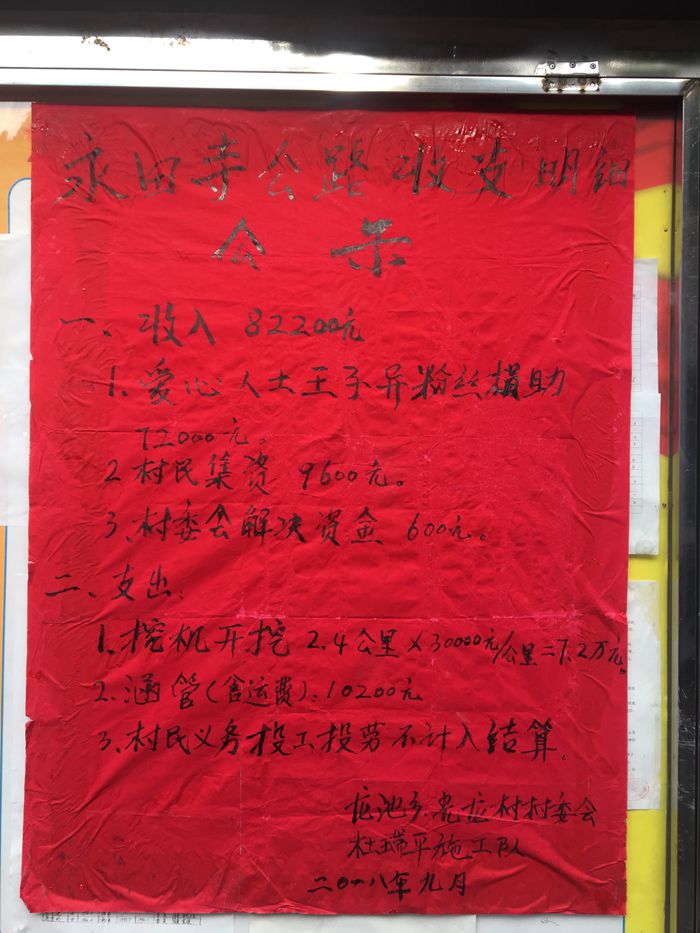 永田寺公路收支明细
公示
一、收入 82200元
1.爱心人士王子异粉丝捐助
72000元。
2村民集资 9600元。
3、村委会解决资金 600元。
二、支出：
1.挖机开挖 2.4公里×30000元/公里=7.2万元。
2.涵管(含运费)：10200元
3、村民义务投工投劳不计入结算。
龙池乡 龙村村委会
杜瑞平施工队
二〇一八年九月